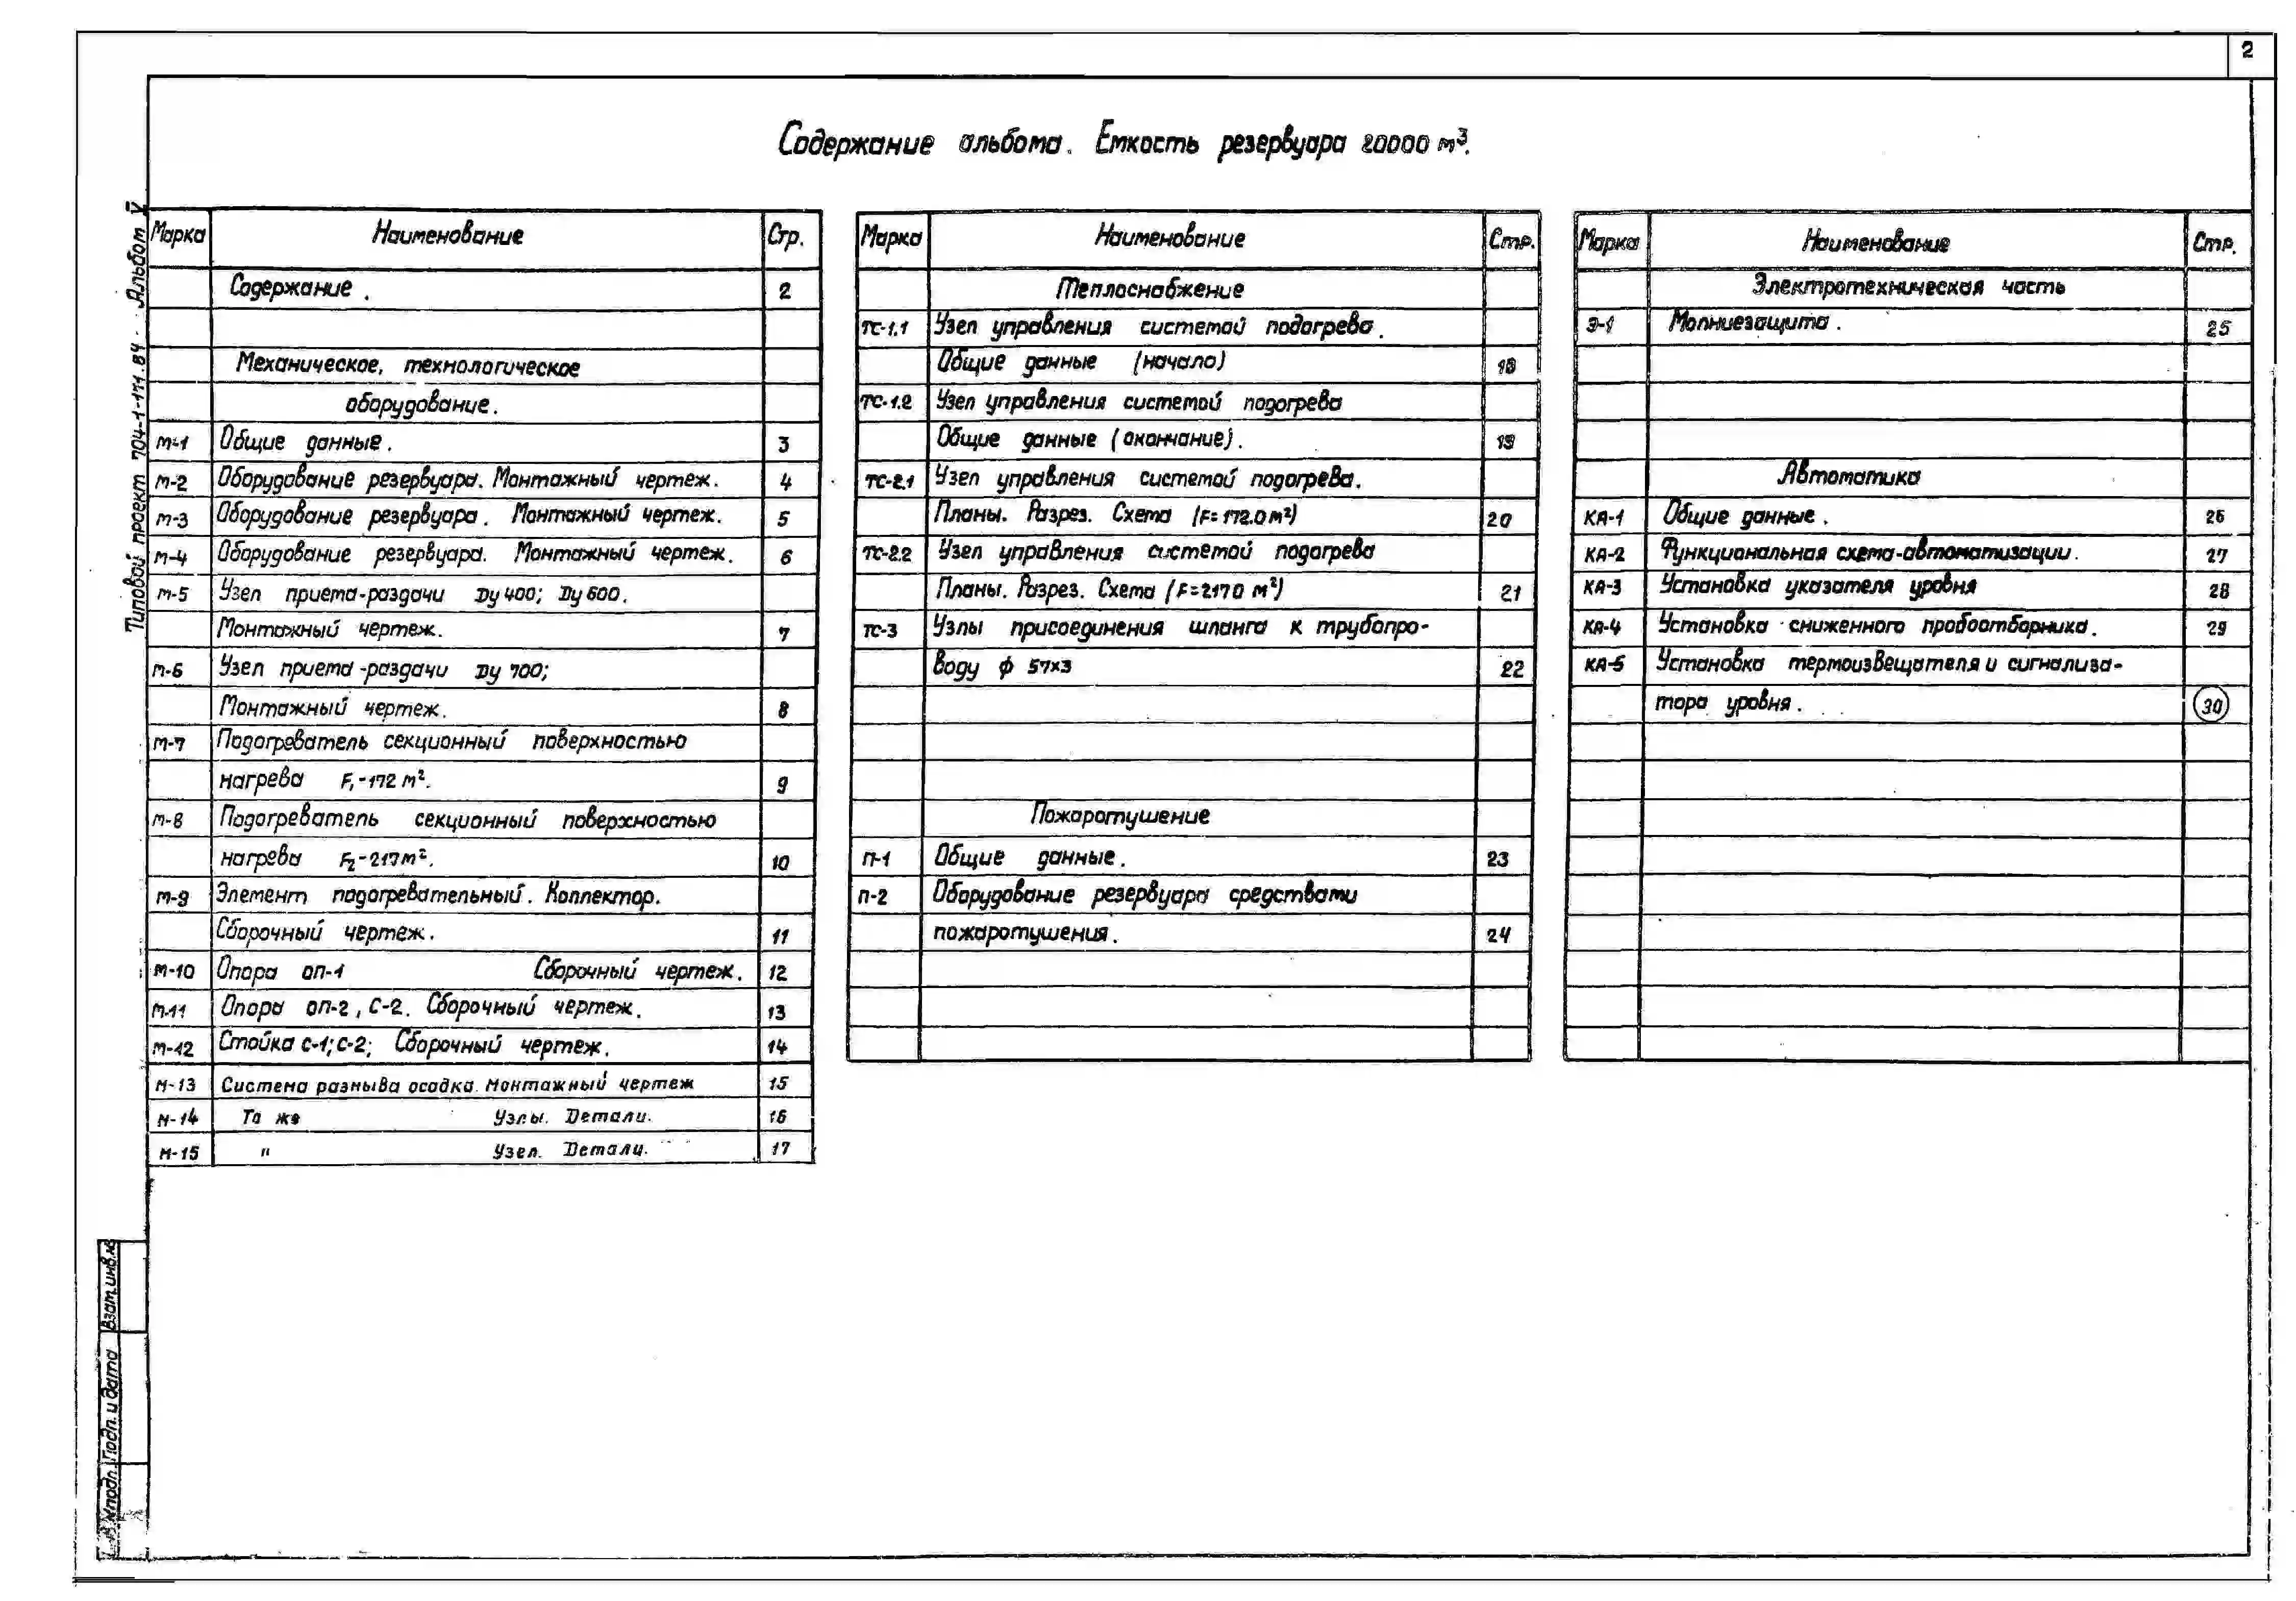 2
Содержание альбома. Емкость резервуара 20000 м³.
Типовой проект 704-1-171.84 Альбом V
Марка Наименование Стр.
Содержание. 2
Механическое, технологическое
оборудование.
М-1 Общие данные. 3
М-2 Оборудование резервуара. Монтажный чертеж. 4
М-3 Оборудование резервуара. Монтажный чертеж. 5
М-4 Оборудование резервуара. Монтажный чертеж. 6
М-5 Узел приема-раздачи Dy 400; Dy 600.
Монтажный чертеж. 7
М-6 Узел приема-раздачи Dy 700;
Монтажный чертеж. 8
М-7 Подогреватель секционный поверхностью
нагрева F₁-172 м². 9
М-8 Подогреватель секционный поверхностью
нагрева F₂-217 м². 10
М-9 Элемент подогревательный. Коллектор.
Сборочный чертеж. 11
М-10 Опора ОП-1 Сборочный чертеж. 12
М-11 Опора ОП-2, С-2. Сборочный чертеж. 13
М-12 Стойка С-1; С-2; Сборочный чертеж. 14
М-13 Система размыва осадка. Монтажный чертеж 15
М-14 То же Узлы. Детали. 16
М-15 " Узел. Детали. 17
Марка Наименование Стр.
Теплоснабжение
ТС-1.1 Узел управления системой подогрева.
Общие данные (начало) 18
ТС-1.2 Узел управления системой подогрева
Общие данные (окончание). 19
ТС-2.1 Узел управления системой подогрева.
Планы. Разрез. Схема (F=172.0 м²) 20
ТС-2.2 Узел управления системой подогрева
Планы. Разрез. Схема (F=2170 м²) 21
ТС-3 Узлы присоединения шланга к трубопро-
воду ф 57х3 22
Пожаротушение
П-1 Общие данные. 23
П-2 Оборудование резервуара средствами
пожаротушения. 24
Марка Наименование Стр.
Электротехническая часть
Э-1 Молниезащита. 25
Автоматика
КА-1 Общие данные. 26
КА-2 Функциональная схема-автоматизации. 27
КА-3 Установка указателя уровня 28
КА-4 Установка сниженного пробоотборника. 29
КА-5 Установка термоизвещателя и сигнализа-
тора уровня. 30
Взам.инв.№
Подп. и дата
№подл.